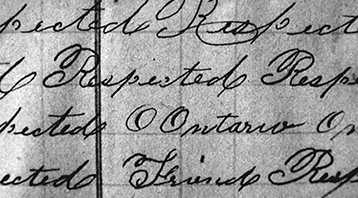 pected Respect
d Respected Resp
pected O Ontario On
ected Friend Resp